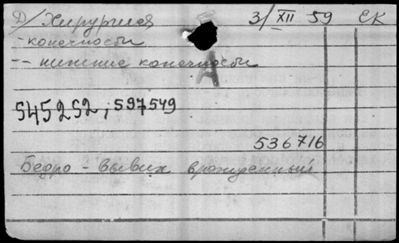 Д/Хирургия 3/XII 59 ЕК
- конечности
-- нижние конечности
А
545252, 597549
536716
Бедро - вывих врожденный